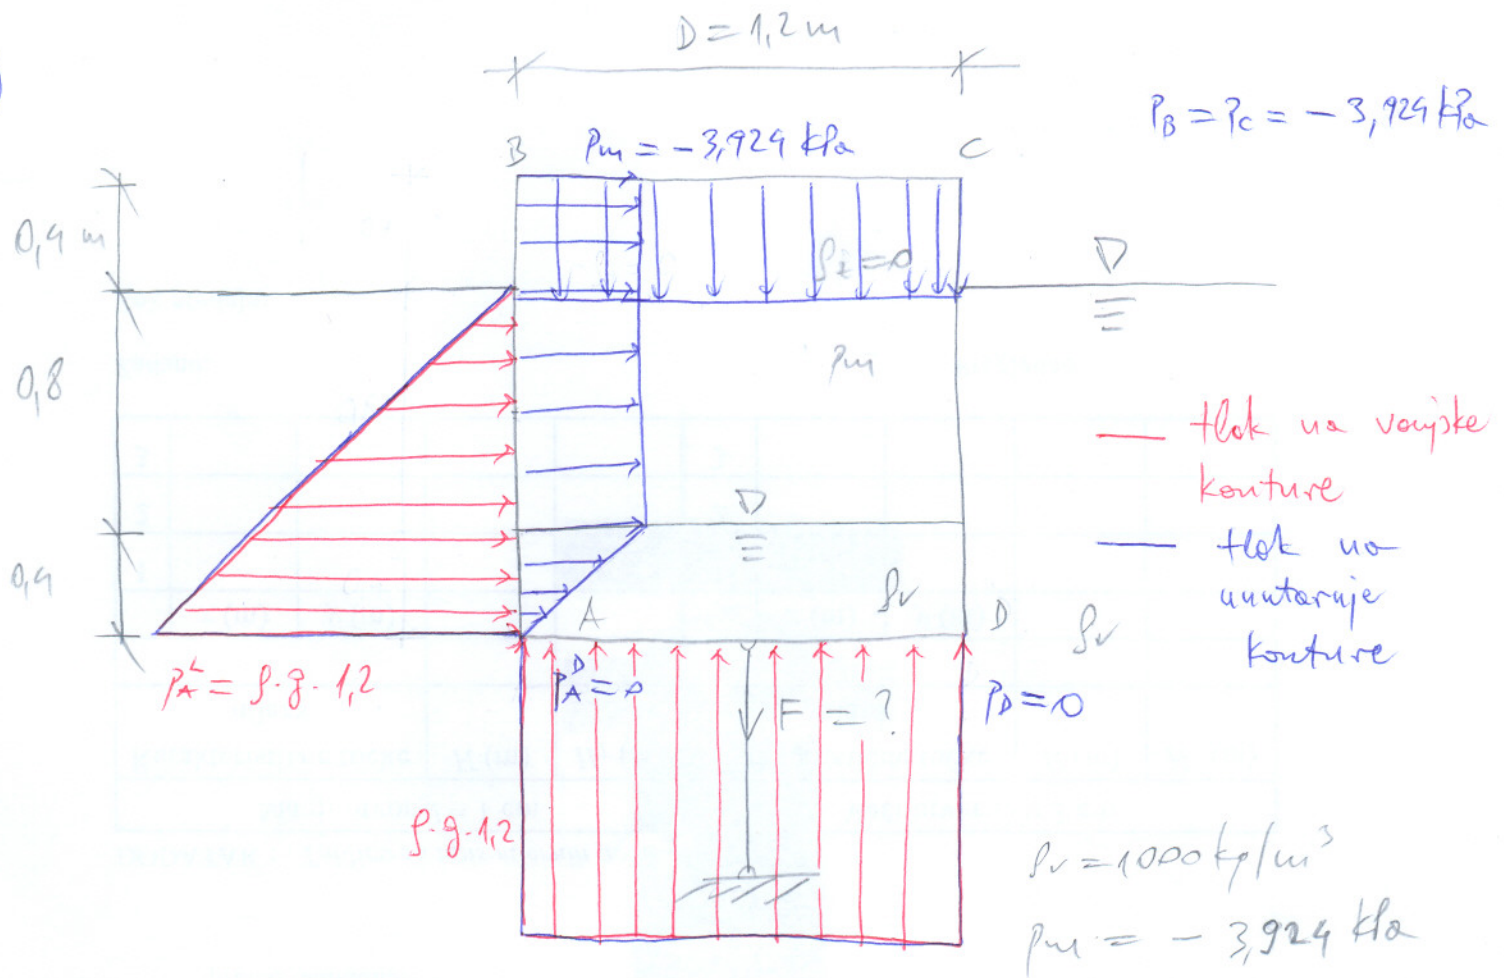 D = 1,2 m
P_B = P_C = - 3,924 kPa
B
Pm = - 3,924 kPa
C
0,4 m
ρz = 0
0,8
Pm
tlak na vanjske
konture
tlak na
unutarnje
konture
0,4
A
ρv
D
ρv
P_A^L = ρ·g·1,2
P_A^D = 0
F = ?
P_D = 0
ρ·g·1,2
ρv = 1000 kg/m³
Pm = - 3,924 kPa